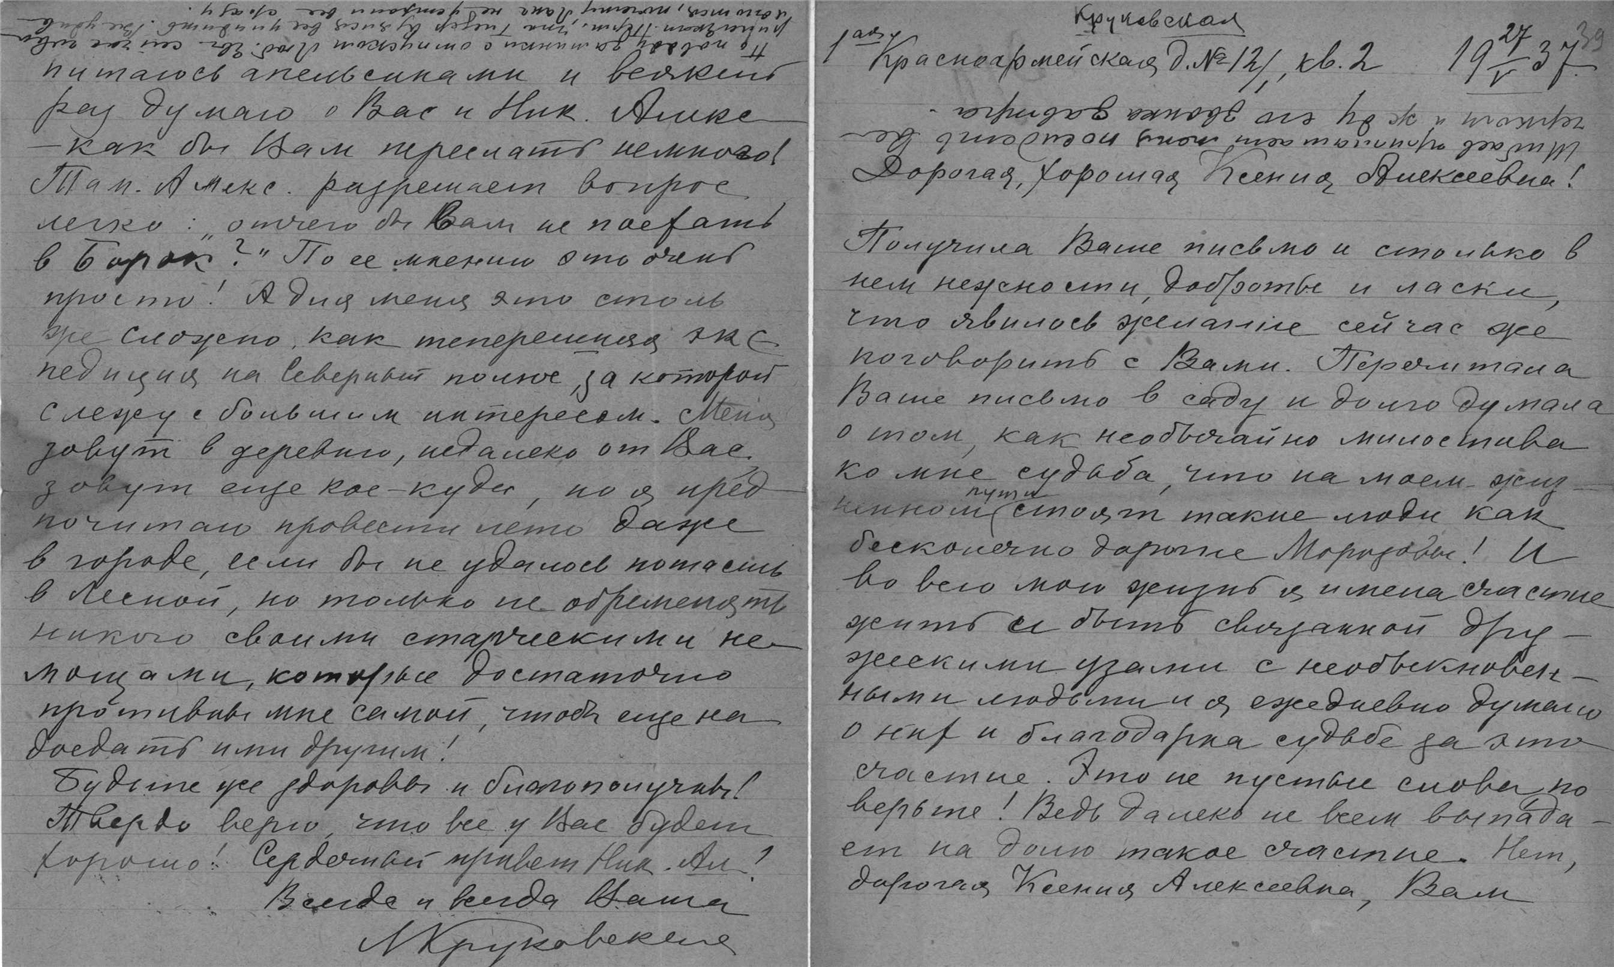 Круковская
1ая Красноармейская д. № 12/1, кв. 2 19 27/V 37. 39
Шибаев приглашает меня посидеть ве-
черком и жду его звонка завтра.
Дорогая, хорошая Ксения Алексеевна!
Получила Ваше письмо и столько в
нем нежности, доброты и ласки,
что явилось желание сейчас же
поговорить с Вами. Перечитала
Ваше письмо в саду и долго думала
о том, как необычайно милостива
ко мне судьба, что на моем жиз-
ненном пути стоят такие люди как
бесконечно дорогие Морозовы! И
во всю мою жизнь я имела счастие
жить и быть связанной дру-
жескими узами с необыкновен-
ными людьми и я ежедневно думаю
о них и благодарна судьбе за это
счастие. Это не пустые слова, по
верьте! Ведь далеко не всем выпада-
ет на долю такое счастие. Нет,
дорогая Ксения Алексеевна, Вам
По поводу заминки с отпуском Люд.
питаюсь апельсинами и всякий
раз думаю о Вас и Ник. Алекс
– как бы Вам переслать немного!
Тат. Алекс. разрешает вопрос
легко: „отчего бы Вам не поехать
в Борок?" По ее мнению это очень
просто! А для меня это столь
же сложно, как теперешняя экс-
педиция на Северный полюс, за которой
слежу с большим интересом. Меня
зовут в деревню, недалеко от Вас,
зовут еще кое-куда, но я пред-
почитаю провести лето даже
в городе, если бы не удалось попасть
в Лесной, но только не обременять
никого своими старческими не-
мощами, которые достаточно
противны мне самой, чтобы еще на
доедать ими другим!
Будьте же здоровы и благополучны!
Твердо верю, что все у Вас будет
хорошо! Сердечный привет Ник. Ал!
Всегда и всегда Ваша
Л Круковская